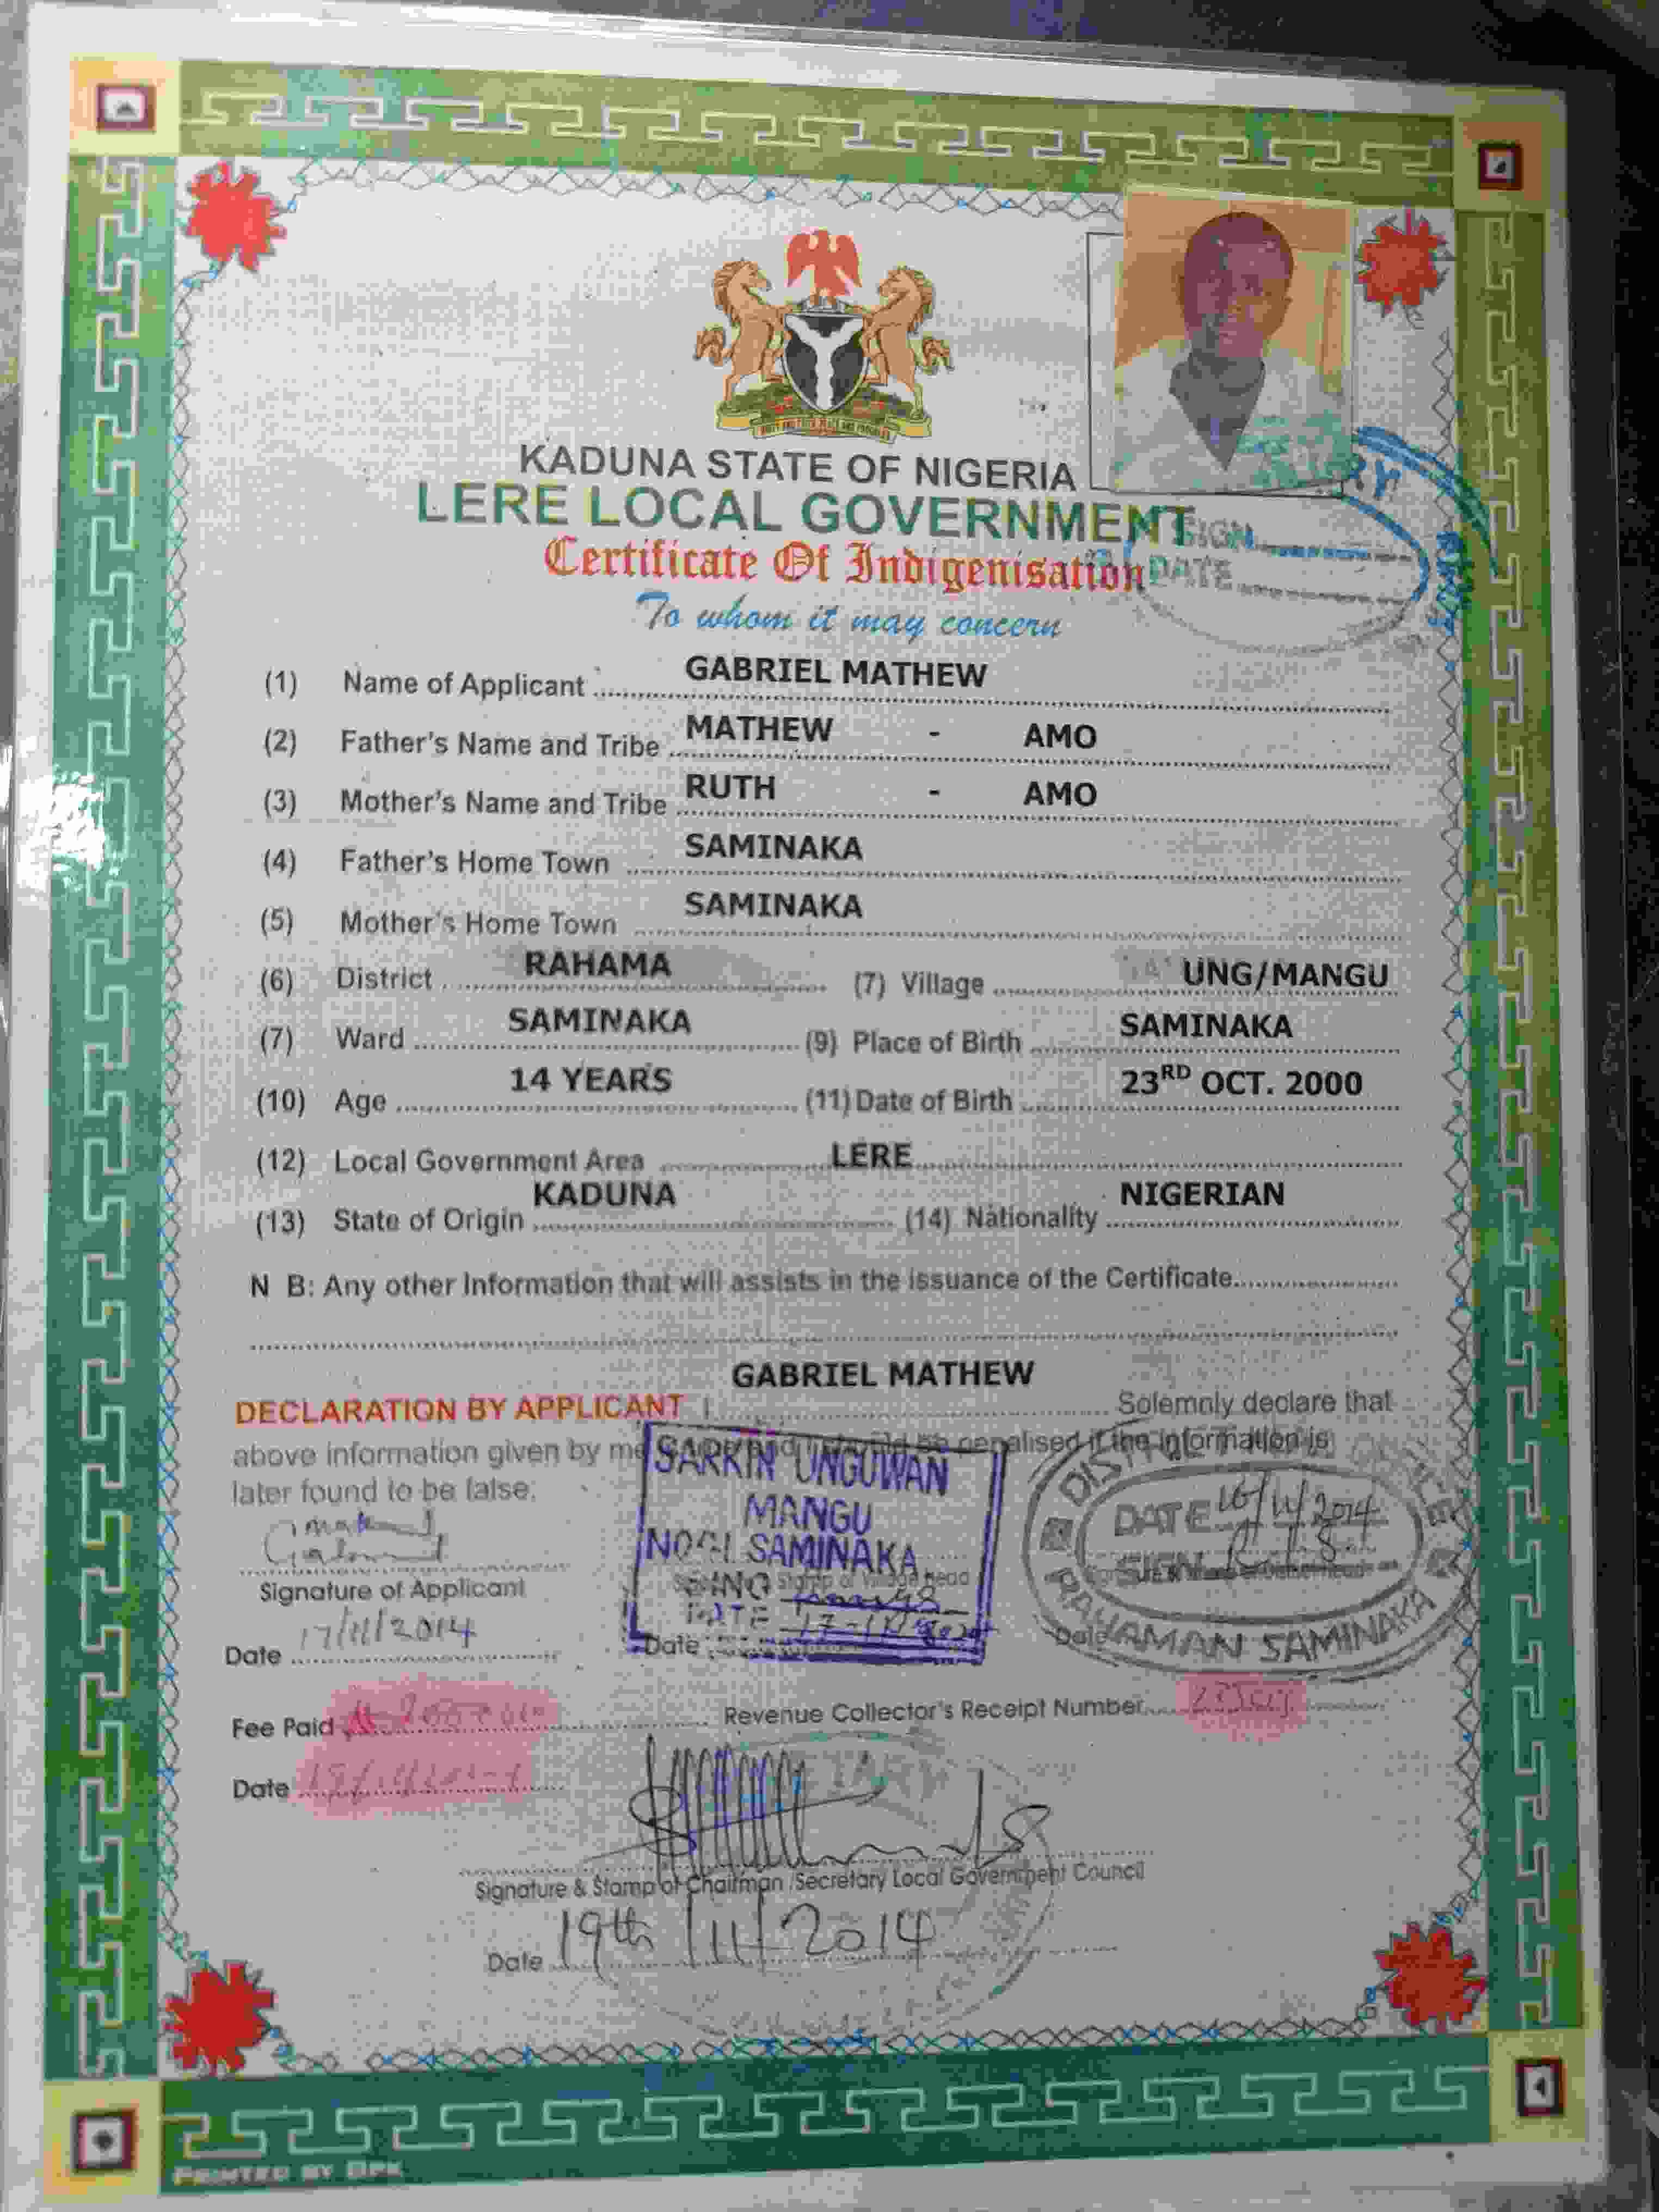 KADUNA STATE OF NIGERIA
LERE LOCAL GOVERNMENT
Certificate Of Indigenisation
To whom it may concern
SIGN
DATE
(1) Name of Applicant GABRIEL MATHEW
(2) Father's Name and Tribe MATHEW - AMO
(3) Mother's Name and Tribe RUTH - AMO
(4) Father's Home Town SAMINAKA
(5) Mother's Home Town SAMINAKA
(6) District RAHAMA (7) Village UNG/MANGU
(7) Ward SAMINAKA (9) Place of Birth SAMINAKA
(10) Age 14 YEARS (11) Date of Birth 23RD OCT. 2000
(12) Local Government Area LERE
(13) State of Origin KADUNA (14) Nationality NIGERIAN
N B: Any other Information that will assists in the issuance of the Certificate
DECLARATION BY APPLICANT I GABRIEL MATHEW Solemnly declare that
above information given by me penalised if the information is
later found to be false.
SARKIN UNGUWAN
MANGU
SAMINAKA
Stamp of Village Head
DATE
Date
DISTRICT
DATE 16/11/2014
SIGN
SAMINAKA
Date
Signature of Applicant
Date 17/11/2014
Fee Paid
Revenue Collector's Receipt Number
Date
Signature & Stamp of Chairman /Secretary Local Government Council
Date 19th/11/2014
PRINTED BY